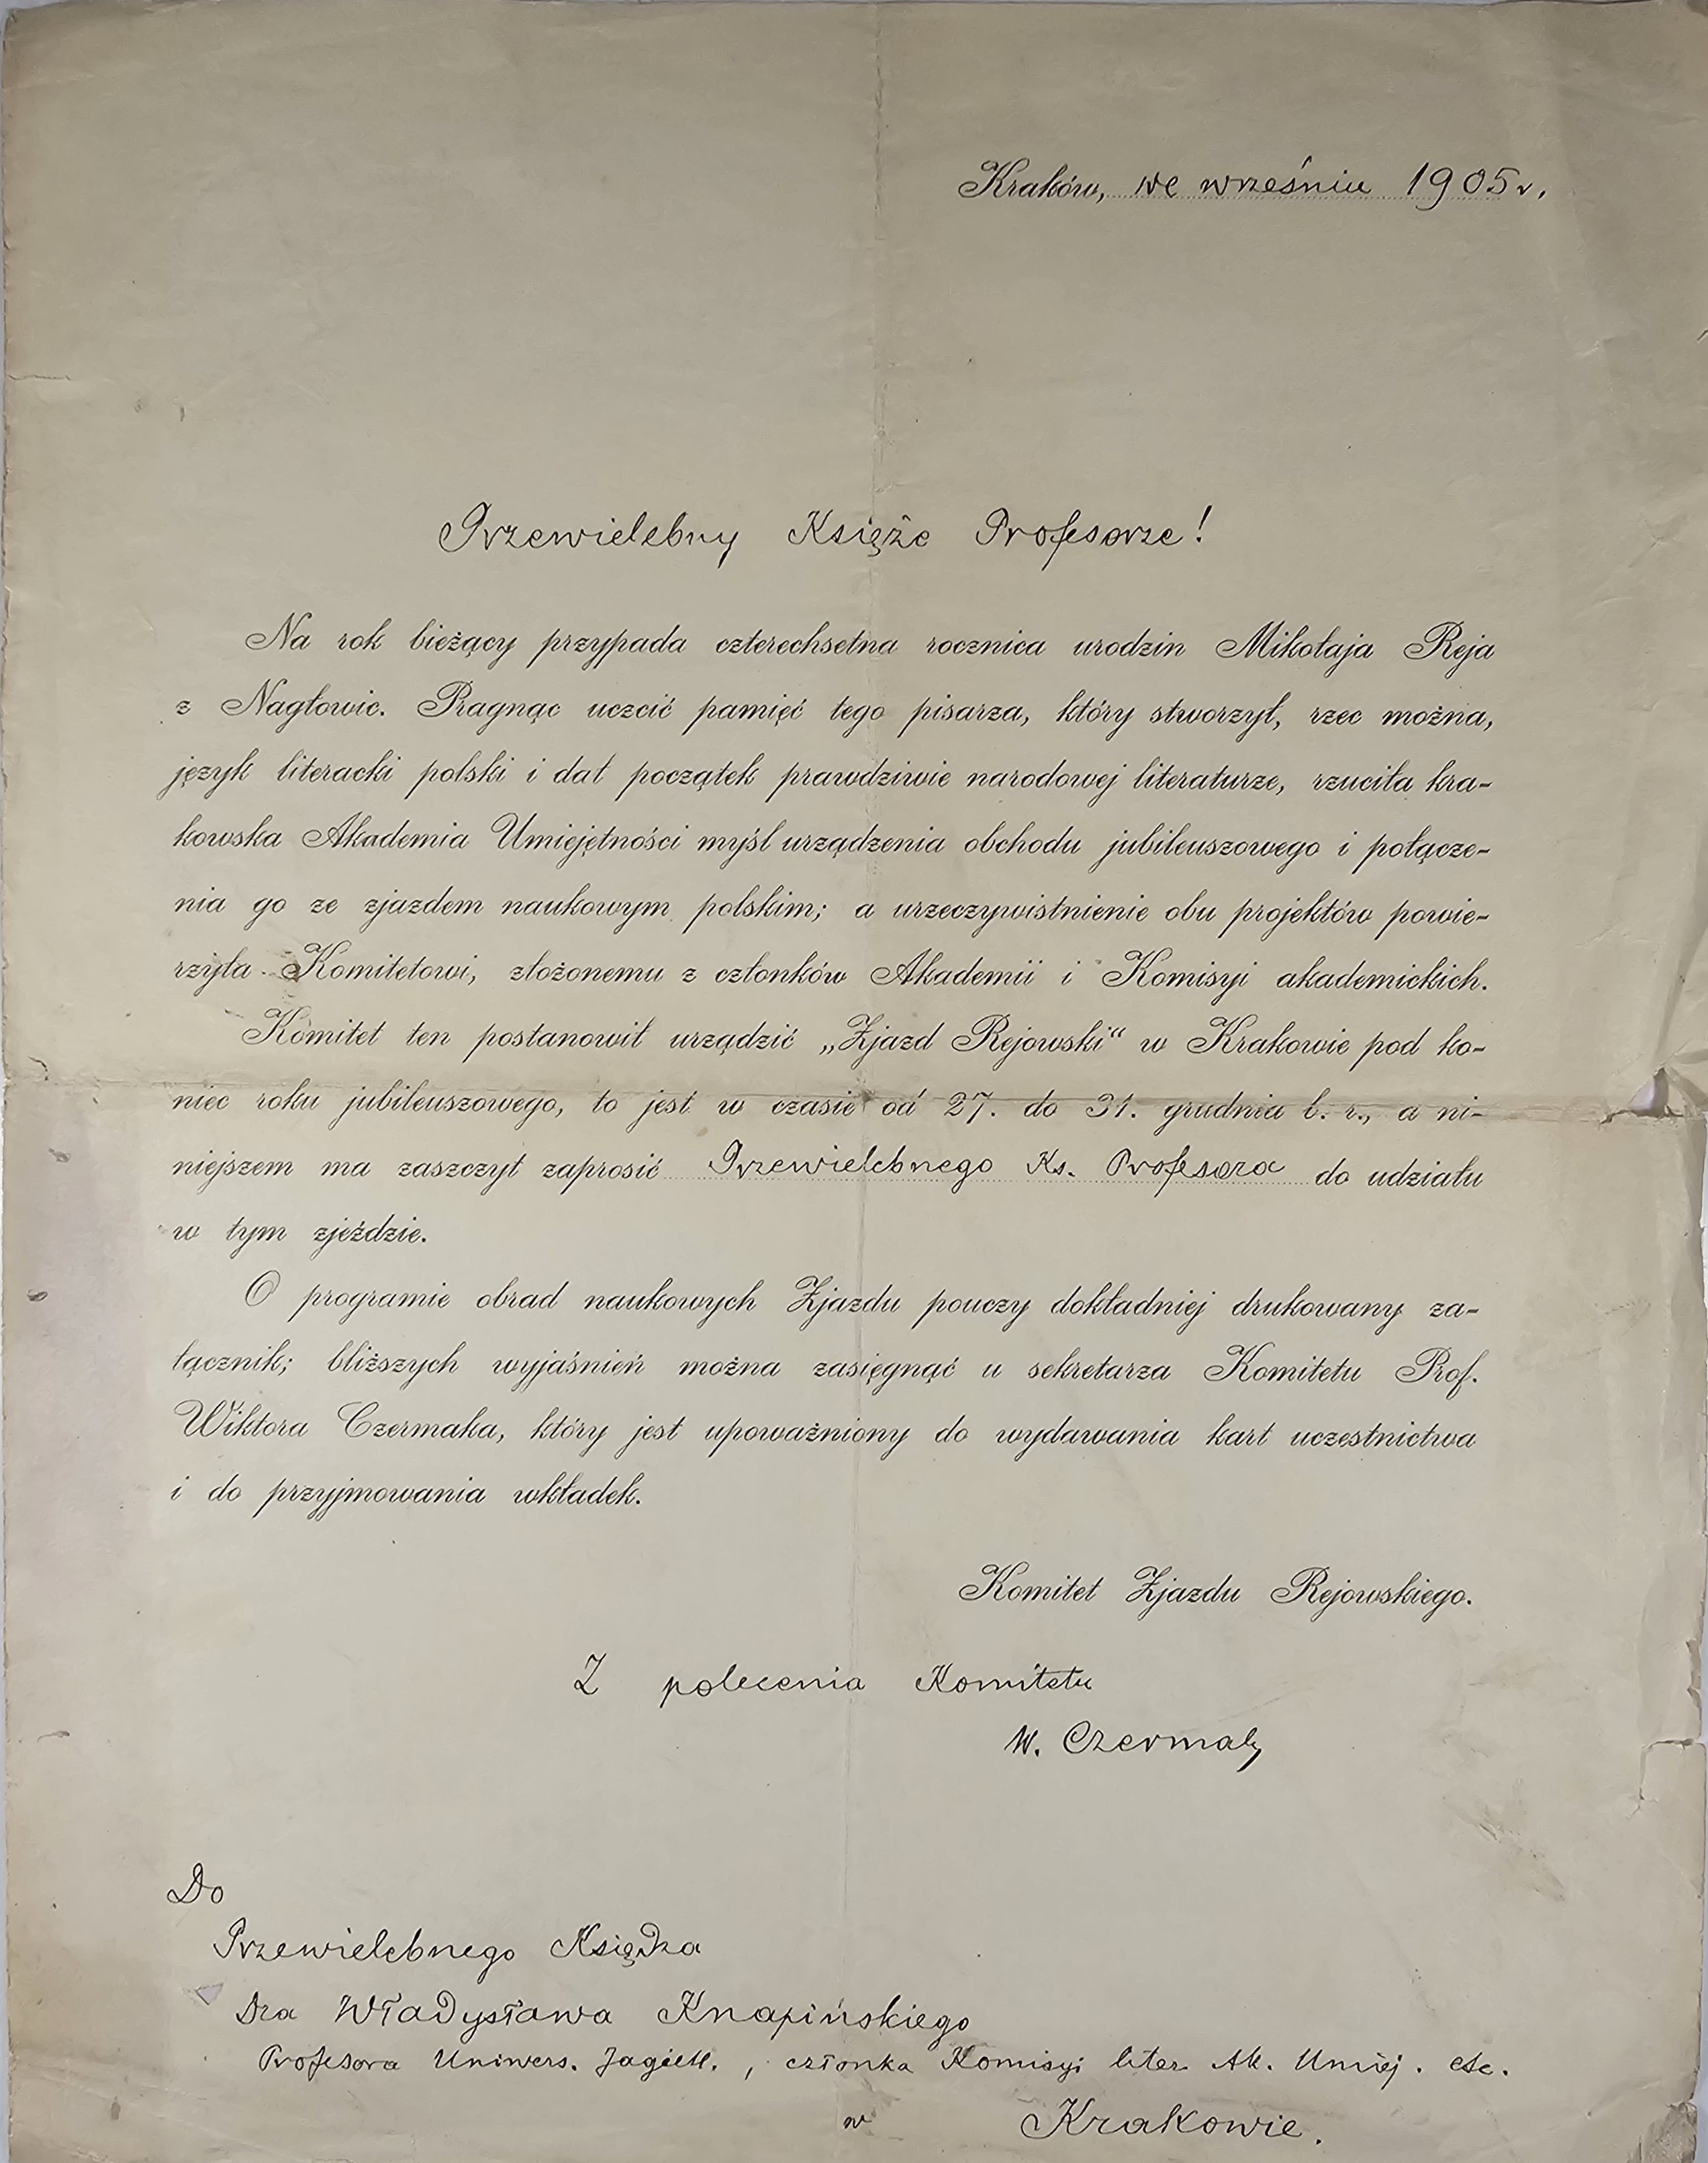 Kraków, we wrześniu 1905 r.
Przewielebny Księże Profesorze!
Na rok bieżący przypada czterechsetna rocznica urodzin Mikołaja Reja
z Nagłowic. Pragnąc uczcić pamięć tego pisarza, który stworzył, rzec można,
język literacki polski i dał początek prawdziwie narodowej literaturze, rzuciła kra-
kowska Akademia Umiejętności myśl urządzenia obchodu jubileuszowego i połącze-
nia go ze zjazdem naukowym polskim; a urzeczywistnienie obu projektów powie-
rzyła Komitetowi, złożonemu z członków Akademii i Komisyi akademickich.
Komitet ten postanowił urządzić „Zjazd Rejowski“ w Krakowie pod ko-
niec roku jubileuszowego, to jest w czasie od 27. do 31. grudnia b. r., a ni-
niejszem ma zaszczyt zaprosić Przewielebnego Ks. Profesora do udziału
w tym zjeździe.
O programie obrad naukowych Zjazdu pouczy dokładniej drukowany za-
łącznik; bliższych wyjaśnień można zasięgnąć u sekretarza Komitetu Prof.
Wiktora Czermaka, który jest upoważniony do wydawania kart uczestnictwa
i do przyjmowania wkładek.
Komitet Zjazdu Rejowskiego.
Z polecenia Komitetu
W. Czermak
Do
Przewielebnego Księdza
Dra Władysława Knapińskiego
Profesora Uniwers. Jagiell., członka Komisyi liter. Ak. Umiej. etc.
w Krakowie.